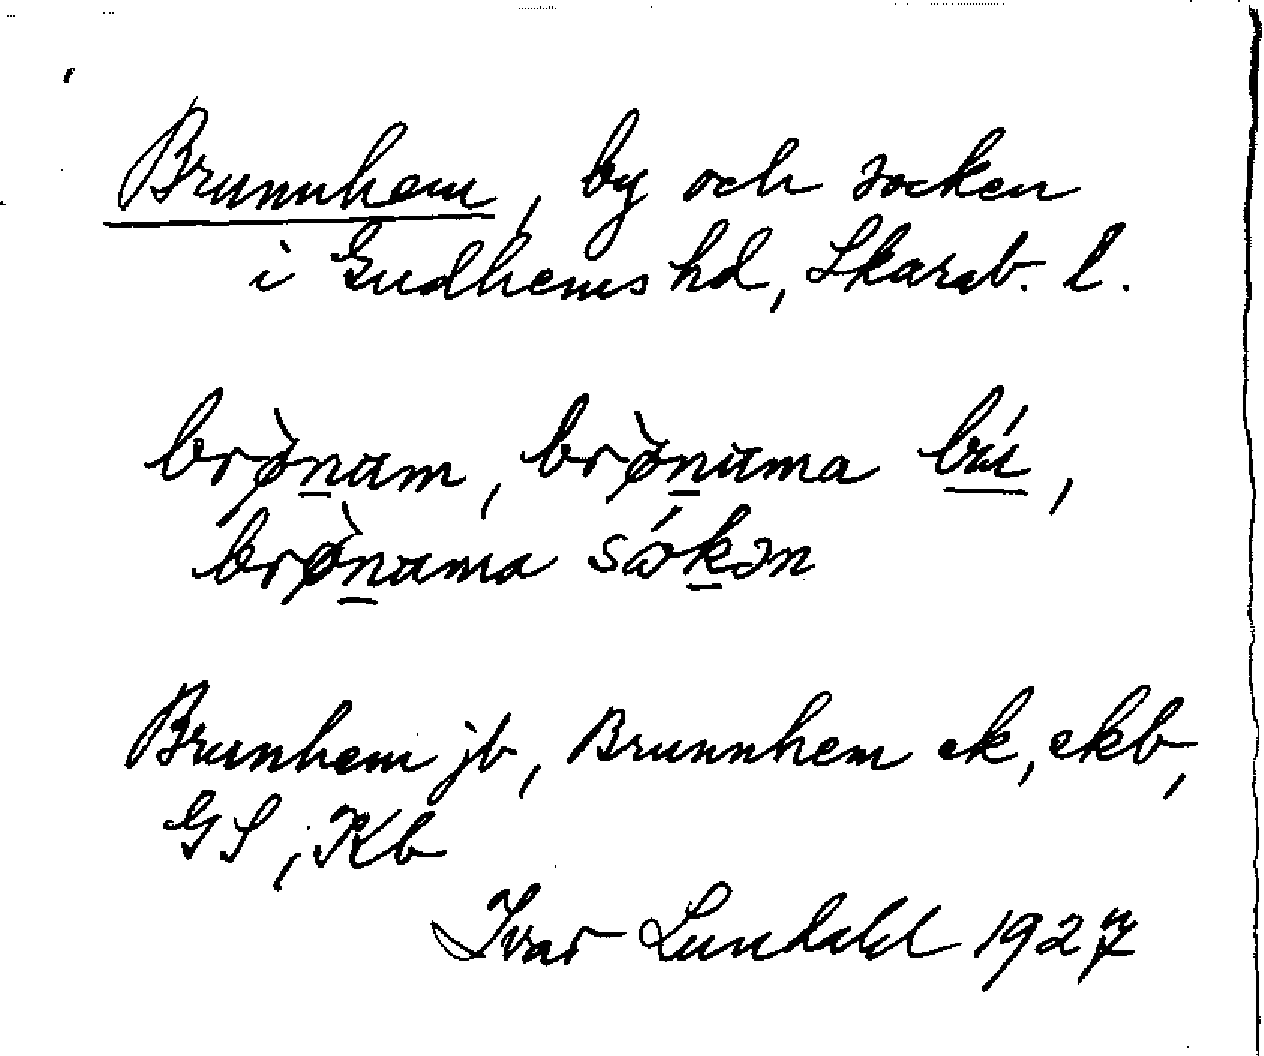 Brunnhem, by och socken
i Gudhems hd, Skarab. l.
brø̀n̲am, brø̀n̲ama bú̲,
brø̀n̲ama sók̲ən
Brunhem jb, Brunnhem ek, ekb,
GS, Kb
Ivar Lundahl 1927